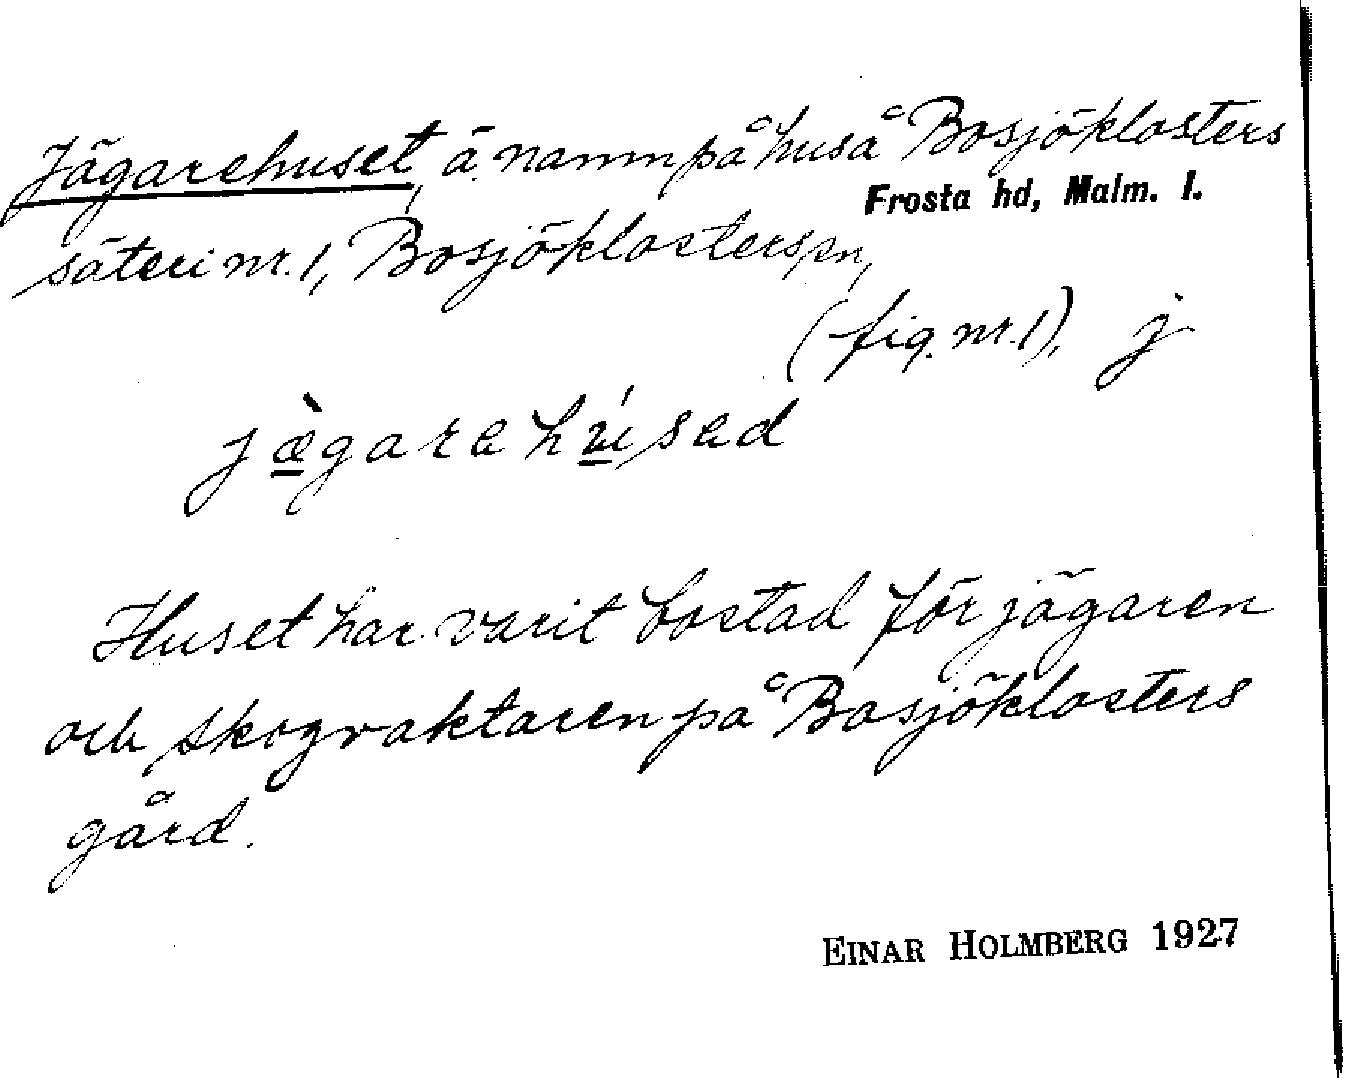 Jägarehuset, ä. namn på hus å Bosjöklosters
Frosta hd, Malm. l.
säteri nr. 1, Bosjöklosters sn,
(fig. nr. 1). j
jæ̀garehúsed
Huset har varit bostad för jägaren
och skogvaktaren på Bosjöklosters
gård.
EINAR HOLMBERG 1927